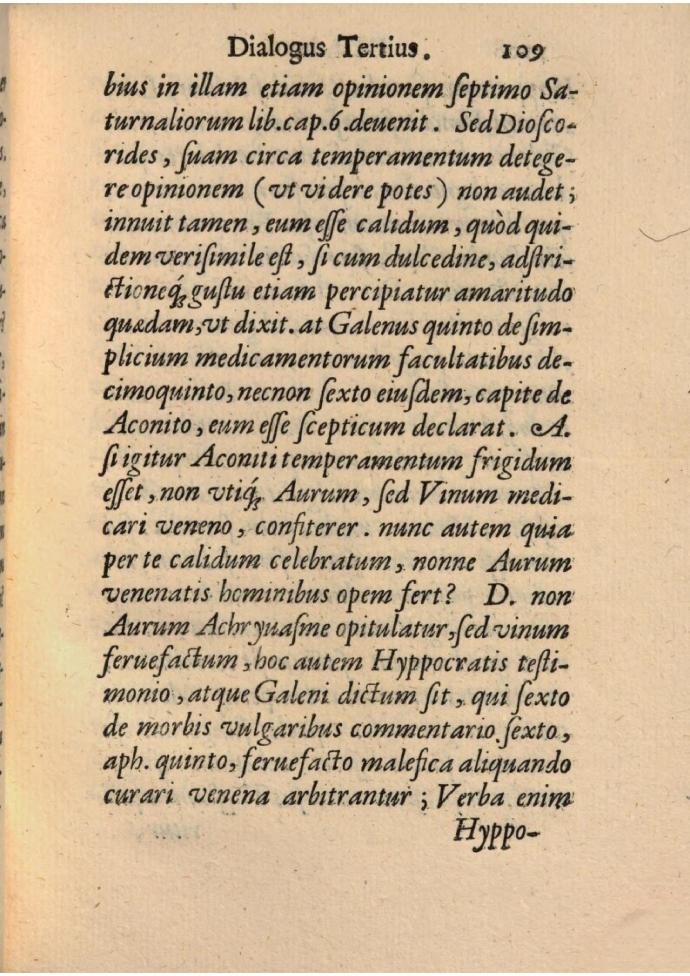 Dialogus Tertius. 109
bius in illam etiam opinionem ſeptimo Sa-
turnaliorum lib.cap.6.deuenit. Sed Dioſco-
rides, ſuam circa temperamentum detege-
re opinionem (vt videre potes) non audet;
innuit tamen, eum eſſe calidum, quòd qui-
dem veriſimile eſt, ſi cum dulcedine, adſtri-
ctioneq́; guſtu etiam percipiatur amaritudo
quædam, vt dixit. at Galenus quinto de ſim-
plicium medicamentorum facultatibus de-
cimoquinto, necnon ſexto eiuſdem, capite de
Aconito, eum eſſe ſcepticum declarat. A.
ſi igitur Aconiti temperamentum frigidum
eſſet, non vtiq́; Aurum, ſed Vinum medi-
cari veneno, confiterer. nunc autem quia
per te calidum celebratum, nonne Aurum
venenatis hominibus opem fert? D. non
Aurum Achryuaſme opitulatur, ſed vinum
feruefactum, hoc autem Hyppocratis teſti-
monio, atque Galeni dictum ſit, qui ſexto
de morbis vulgaribus commentario ſexto,
aph. quinto, feruefacto malefica aliquando
curari venena arbitrantur; Verba enim
Hyppo-